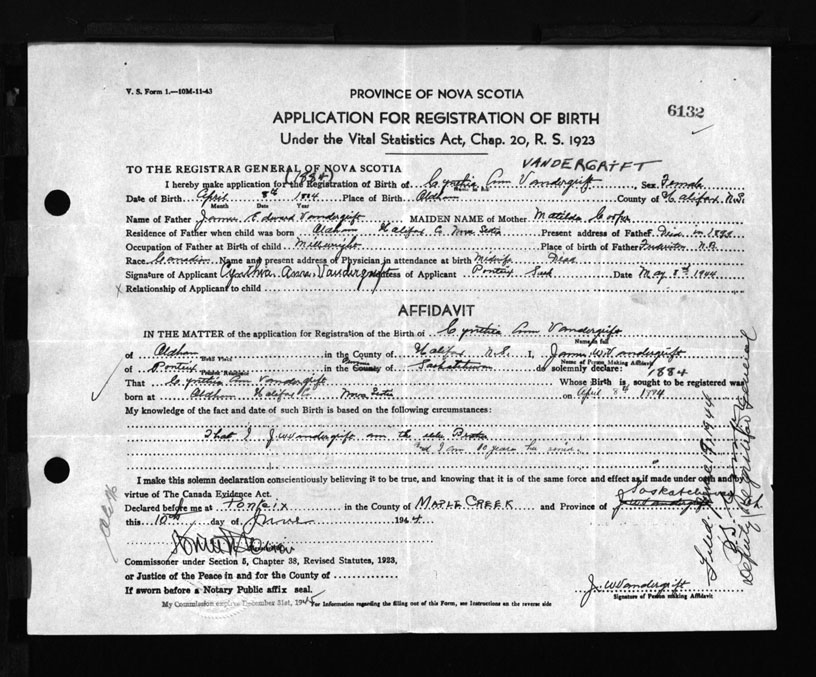 V. S. Form 1.—10M-11-43
PROVINCE OF NOVA SCOTIA
6132
APPLICATION FOR REGISTRATION OF BIRTH
Under the Vital Statistics Act, Chap. 20, R. S. 1923
VANDERGRIFT
TO THE REGISTRAR GENERAL OF NOVA SCOTIA
(1884)
I hereby make application for the Registration of Birth of Cynthia Ann Vandergrift Sex Female
Date of Birth April 8th 1894 Place of Birth Oldham County of Halifax N.S.
Month Date Year
Name of Father James Edward Vandergrift MAIDEN NAME of Mother Matilda Cooper
Residence of Father when child was born Oldham Halifax C Nova Scotia Present address of Father Died in
Occupation of Father at Birth of child Millwright Place of birth of Father N.B.
Race Canadian Name and present address of Physician in attendance at birth Midwife Dead
Signature of Applicant Cynthia Ann Vandergrift Address of Applicant Ponteix Sask Date May 8th 1944
x Relationship of Applicant to child
AFFIDAVIT
IN THE MATTER of the application for Registration of the Birth of Cynthia Ann Vandergrift
Name in full
of Oldham in the County of Halifax N.S. I, James W Vandergrift
Birth Place Name of Person Making Affidavit
of Ponteix in the County of Saskatchewan do solemnly declare:
Present Residence Province 1884
That Cynthia Ann Vandergrift Whose Birth is sought to be registered was
born at Oldham Halifax Co Nova Scotia on April 8th 1894
My knowledge of the fact and date of such Birth is based on the following circumstances:
That I J. W Vandergrift am the Brother
and I am 10 years her senior
I make this solemn declaration conscientiously believing it to be true, and knowing that it is of the same force and effect as if made under oath and by
virtue of The Canada Evidence Act.
Saskatchewan
Declared before me at Ponteix in the County of MAPLE CREEK and Province of
this 10th day of June 1944
Commissoner under Section 5, Chapter 38, Revised Statutes, 1923,
or Justice of the Peace in and for the County of
If sworn before a Notary Public affix seal.
J. W Vandergrift
Signature of Person making Affidavit
My Commission expires December 31st, 1945
For Information regarding the filling out of this Form, see Instructions on the reverse side
Filed June 19, 1944
Deputy Registrar General